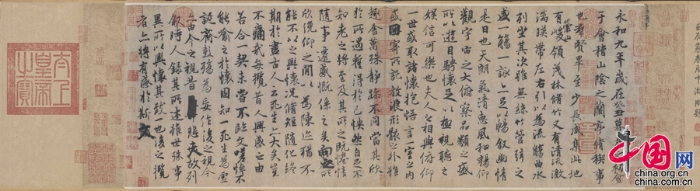 永和九年歲在癸丑暮春之初會
于會稽山陰之蘭亭脩稧事
也羣賢畢至少長咸集此地
有崇山峻領茂林脩竹又有清流激
湍暎帶左右引以為流觴曲水
列坐其次雖無絲竹管弦之
盛一觴一詠亦足以暢敘幽情
是日也天朗氣清惠風和暢仰
觀宇宙之大俯察品類之盛
所以遊目騁懷足以極視聽之
娛信可樂也夫人之相與俯仰
一世或取諸懷抱悟言一室之內
或因寄所託放浪形骸之外雖
趣舍萬殊靜躁不同當其欣
於所遇蹔得於己怏然自足不
知老之將至及其所之既惓情
隨事遷感慨係之矣向之所
欣俛仰之閒以為陳迹猶不
能不以之興懷況脩短隨化終
期於盡古人云死生亦大矣豈
不痛哉每攬昔人興感之由
若合一契未嘗不臨文嗟悼不
能喻之於懷固知一死生為虛
誕齊彭殤為妄作後之視今
亦由今之視昔悲夫故列
敘時人錄其所述雖世殊事
異所以興懷其致一也後之攬
者亦將有感於斯文
太上皇帝之寶
中国网
china.com.cn
www.china.org.cn